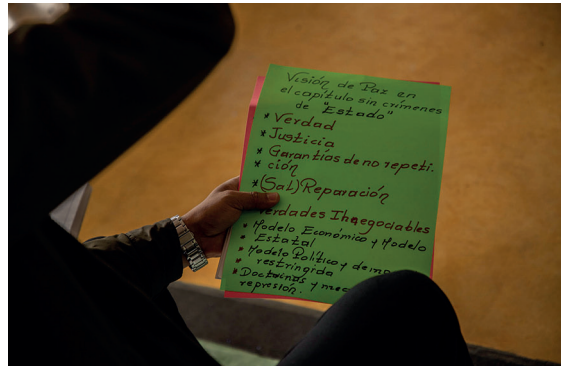 Visión de Paz en
el capítulo sin crímenes
de "Estado"
* Verdad
* Justicia
* Garantías de no repeti.
* ción
* (Sat) Reparación
Verdades Innegociables
* Modelo Económico y Modelo
Estatal
* Modelo Político y
restringida
* Doctrinas y
represión.